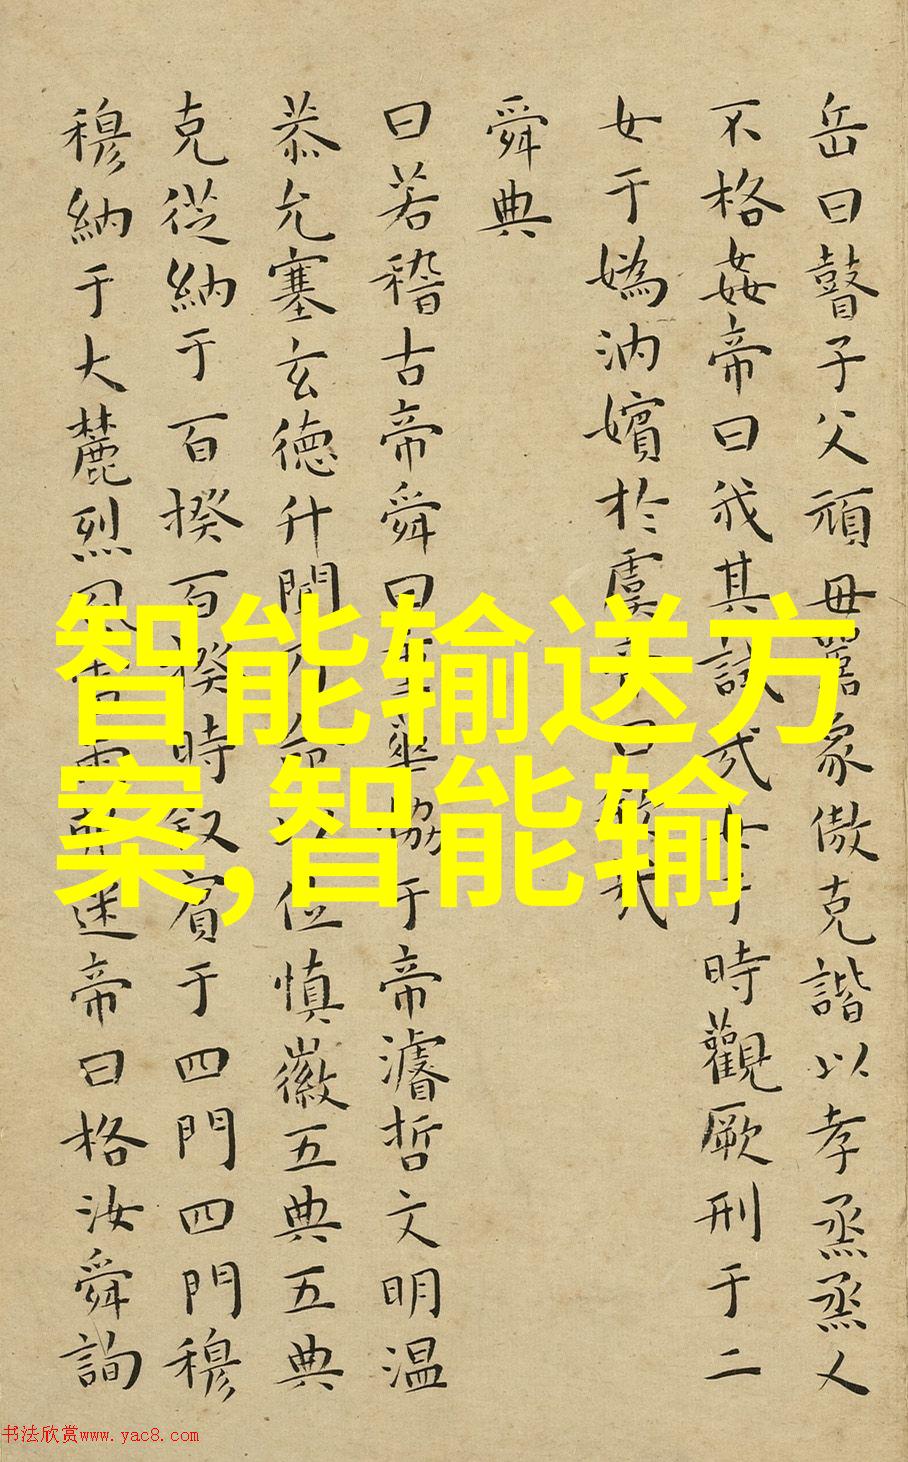 岳曰瞽子父頑毋嚚象傲克諧以孝烝烝乂
不格姦帝曰我其試哉女于時觀厥刑于二
女于媯汭嬪於虞帝曰欽哉
舜典
曰若稽古帝舜曰重華協于帝濬哲文明温
恭允塞玄徳升聞乃命以位慎徽五典五典
克從納于百揆百揆時叙賔于四門四門穆
穆納于大麓烈風雷雨弗迷帝曰格汝舜詢
智能输送方
案,智能输
书法欣赏www.yac8.com